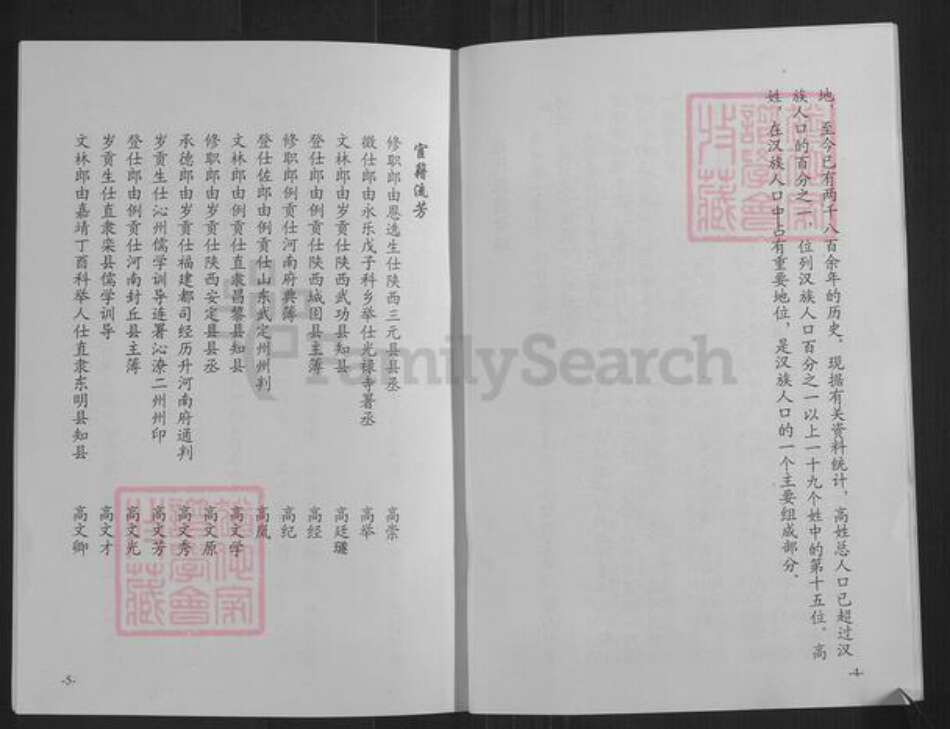 地，至今已有两千八百余年的历史。现据有关资料统计，高姓总人口已超过汉
族人口的百分之一，位列汉族人口百分之一以上一十九个姓中的第十五位，高
姓，在汉族人口中占有重要地位，是汉族人口的一个主要组成部分。
-4-
宦籍流芳
修职郎由恩选生仕陕西三元县县丞 高崇
徵仕郎由永乐戊子科乡举仕光禄寺署丞 高举
文林郎由岁贡仕陕西武功县知县 高廷璲
登仕郎由例贡仕陕西城固县主簿 高经
修职郎例贡仕河南府典簿 高纪
登仕佐郎由例贡仕山东武定州州判 高岚
文林郎由例贡仕直隶昌黎县知县 高文学
修职郎由岁贡仕陕西安定县县丞 高文原
承德郎由岁贡仕福建都司经历升河南府通判 高文秀
岁贡生仕沁州儒学训导连署沁潦二州州印 高文芳
登仕郎由例贡仕河南封丘县主簿 高文光
岁贡生仕直隶栾县儒学训导 高文才
文林郎由嘉靖丁酉科举人仕直隶东明县知县 高文卿
-5-
FamilySearch